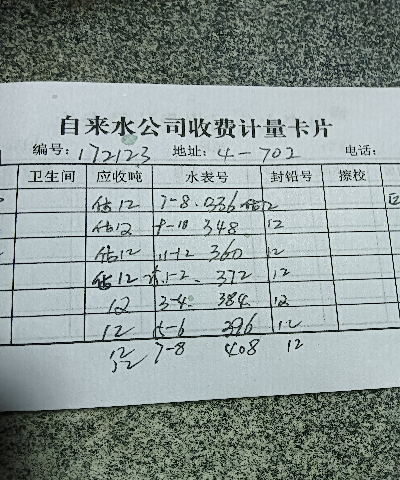 自来水公司收费计量卡片
编号: 172123 地址: 4-702 电话:
卫生间 应收吨 水表号 封铅号 擦校
估12 7-8. 336 估12
估12 9-10 348 12
估12 11-12 360 12
估12 1-2. 372 12
12 3-4. 384 12
12 5-6 396 12
12 7-8 408 12